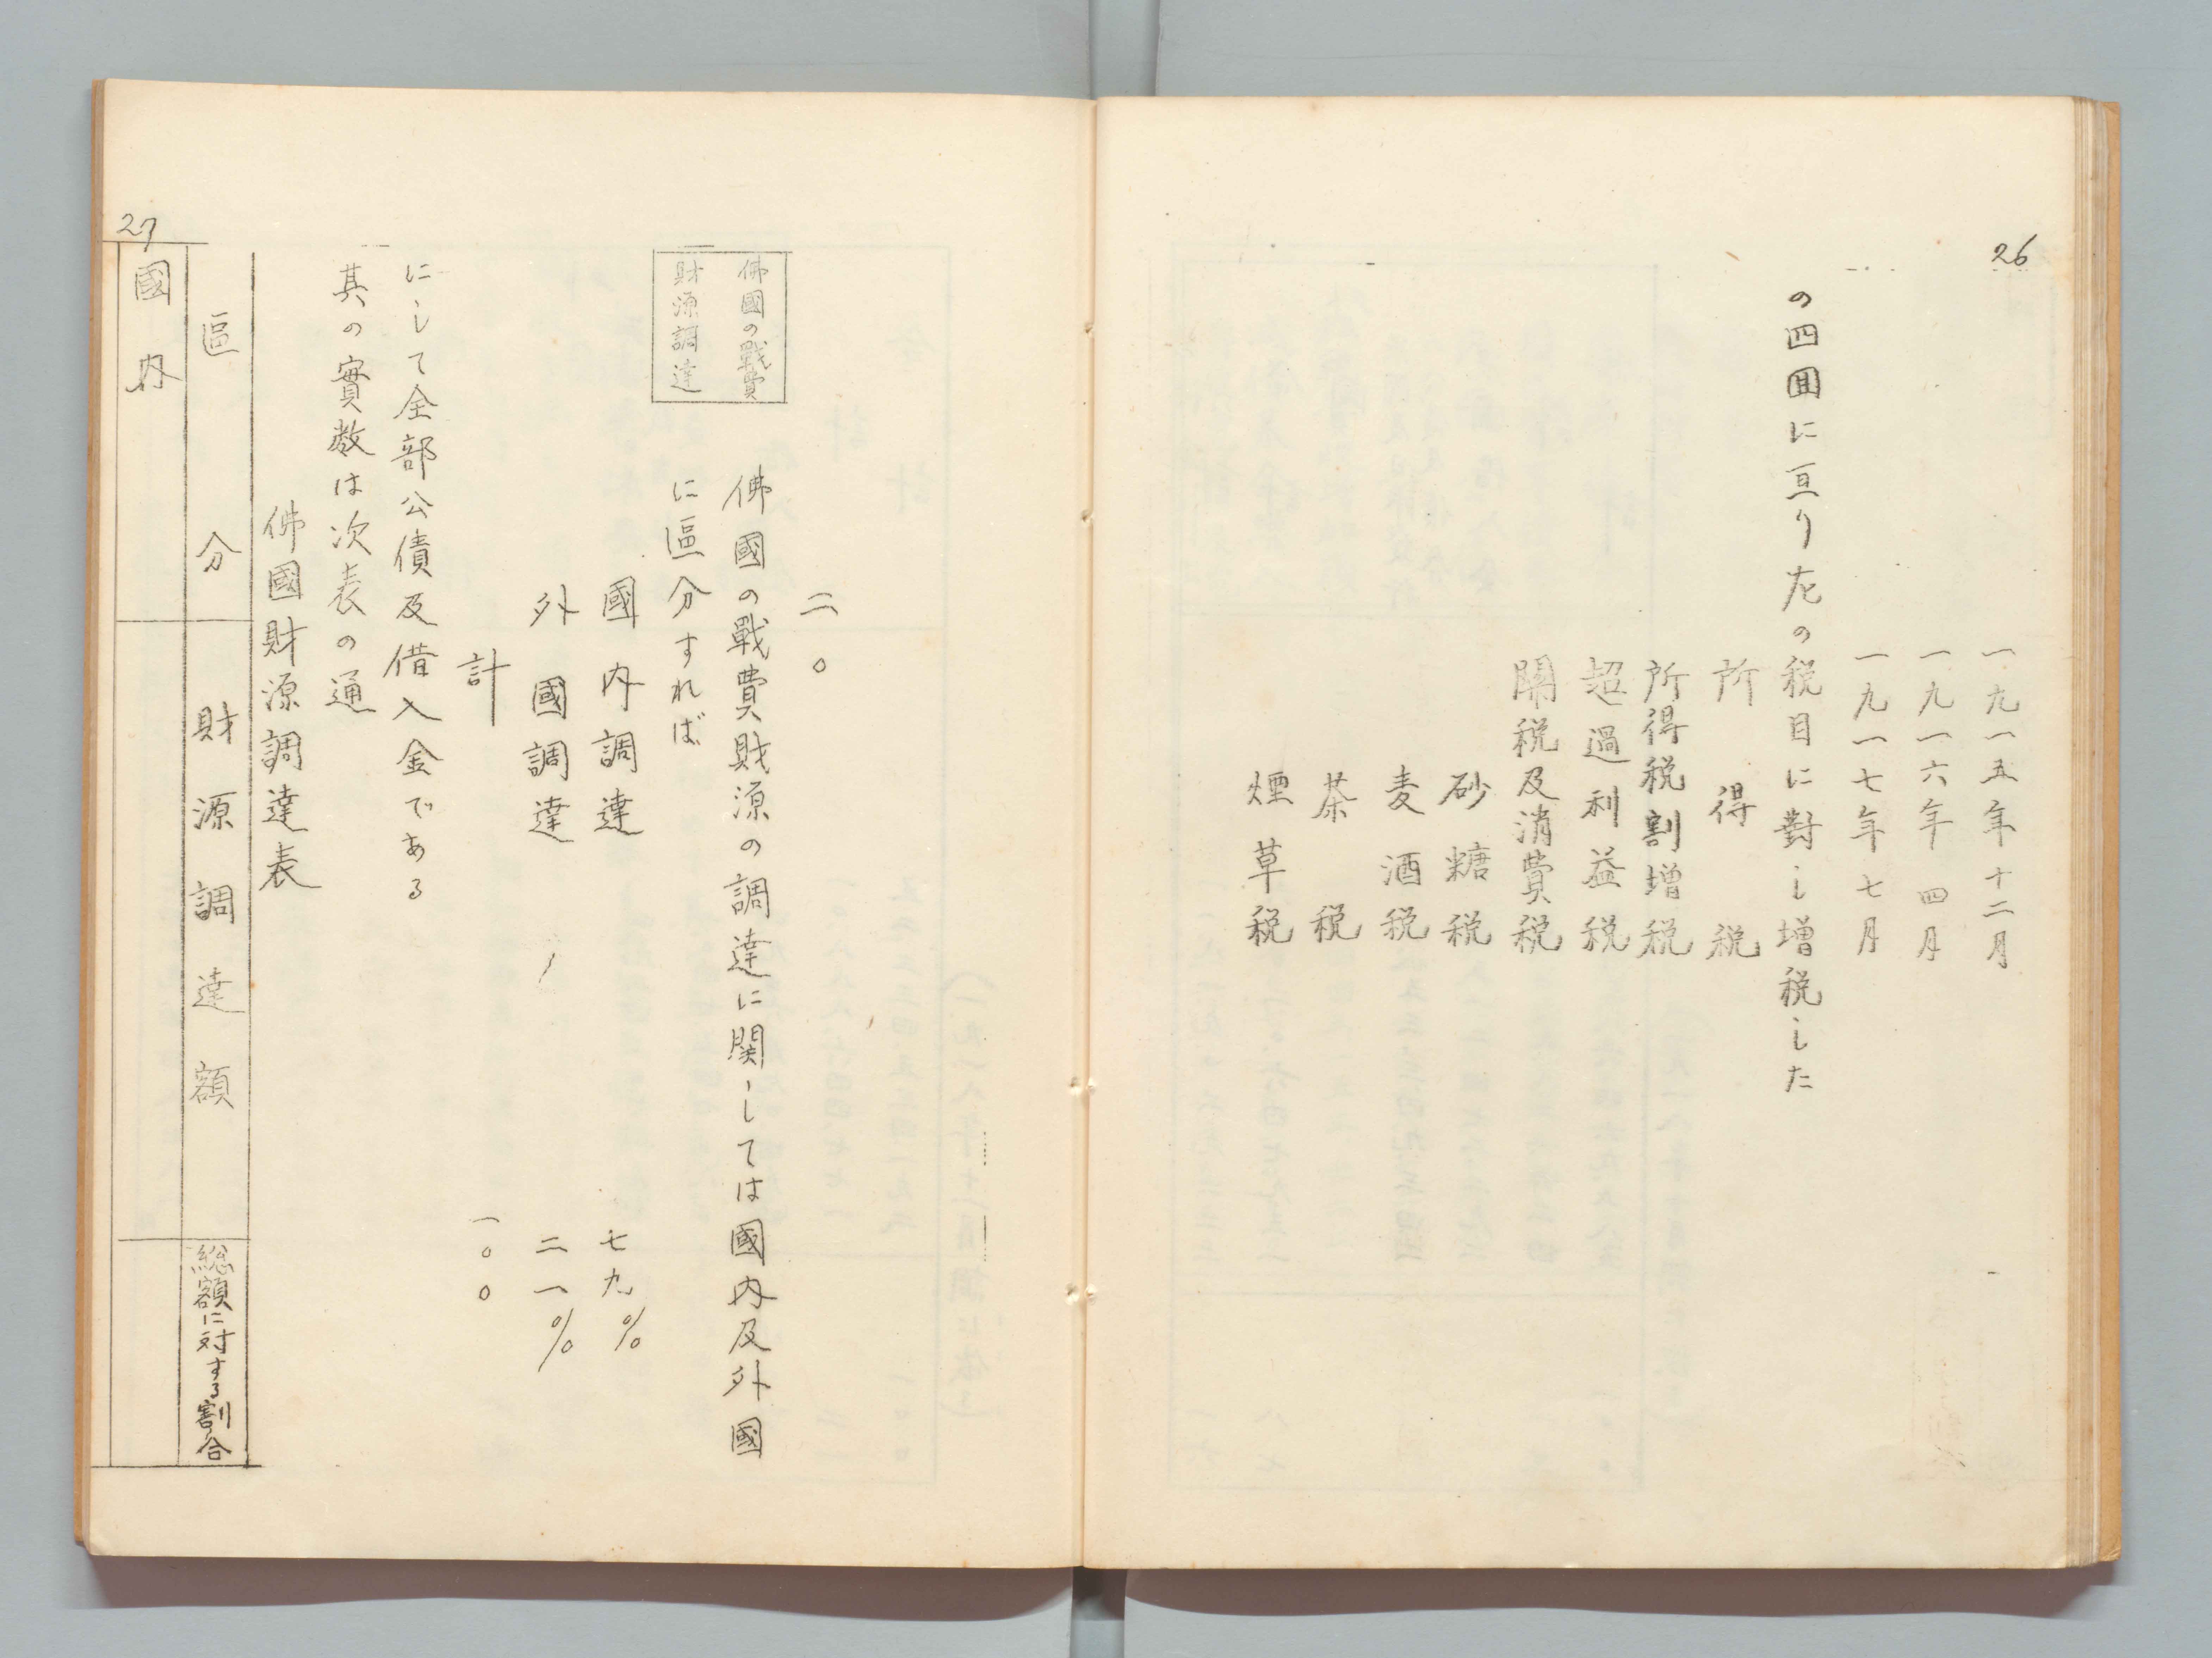 26
一九一五年十二月
一九一六年四月
一九一七年七月
の四囬に亘り左の税目に對し増税した
所得税
所得税割増税
超過利益税
關税及消費税
砂糖税
麦酒税
茶税
煙草税
二〇
佛國の戰費
財源調達
佛國の戰費財源の調達に関しては國内及外國
に區分すれば
國内調達 七九%
外國調達 二一%
計 一〇〇
にして全部公債及借入金である
其の實数は次表の通
佛國財源調達表
區分 財源調達額 総額に対する割合
國内
27